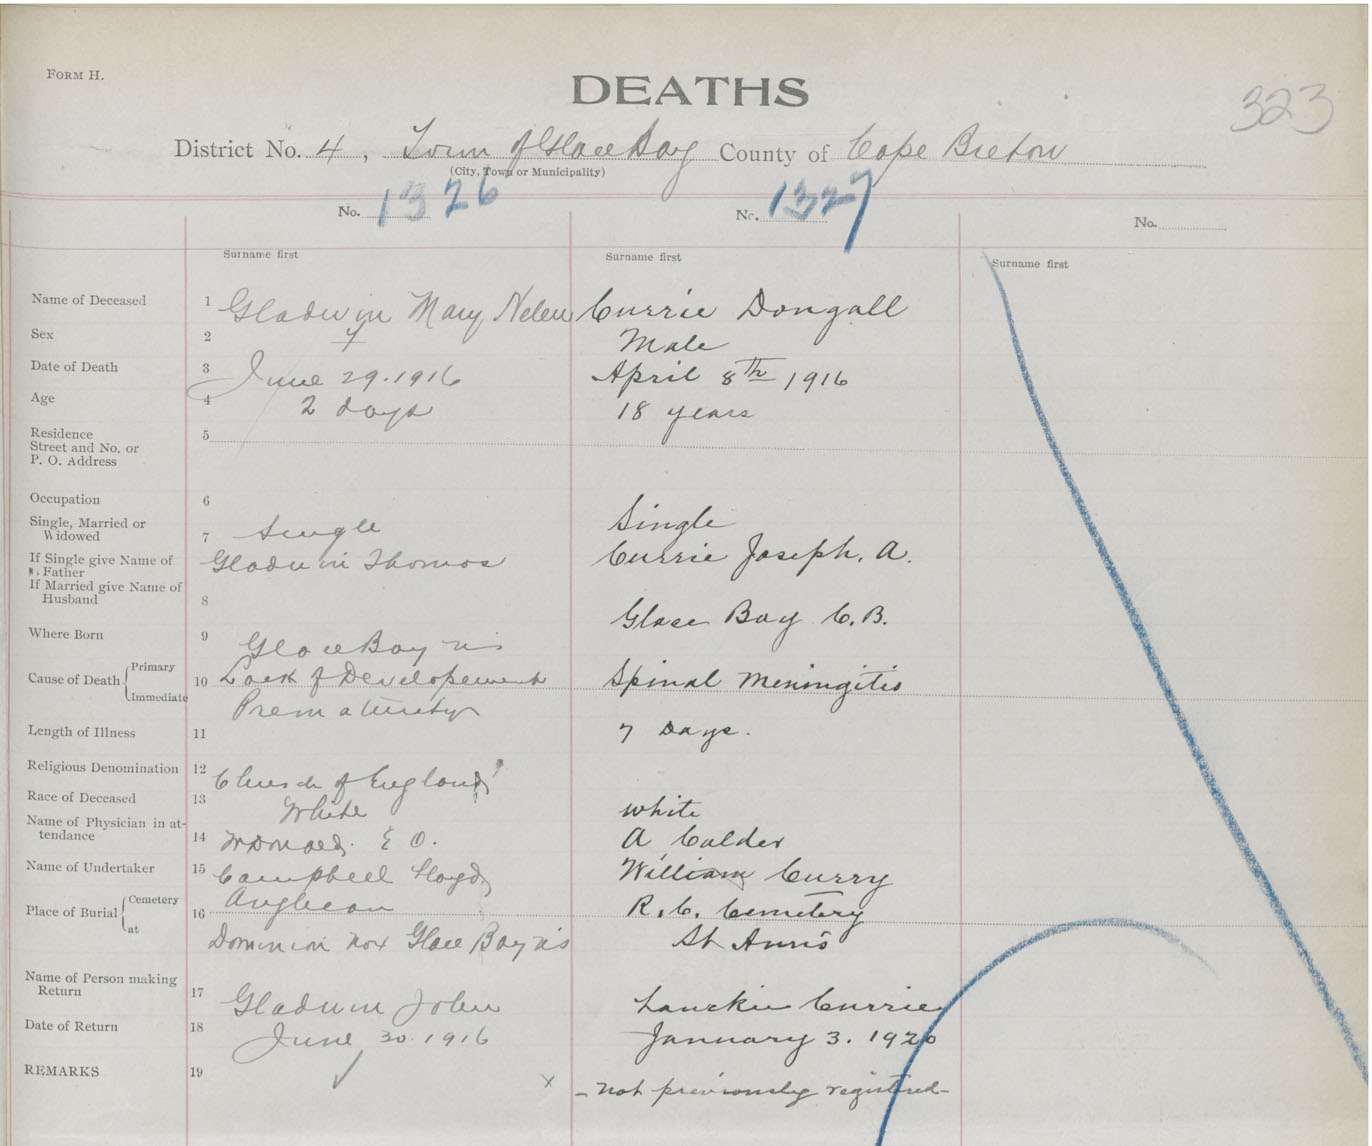 FORM H.
DEATHS
323
District No. 4, Town of Glace Bay County of Cape Breton
(City, Town or Municipality)
No. 1326 No. 1327 No.
Surname first Surname first Surname first
Name of Deceased 1 Gladwin Mary Helen Currie Dongall
Sex 2 f Male
Date of Death 3 June 29. 1916 April 8th 1916
Age 4 2 days 18 years
Residence 5
Street and No. or
P. O. Address
Occupation 6
Single, Married or
Widowed 7 Single Single
If Single give Name of Gladwin Thomas Currie Joseph. A.
Father
If Married give Name of
Husband 8
Where Born 9 Glace Bay ns Glace Bay C.B.
Cause of Death Primary 10 Lack of Developement Spinal Meningitis
Immediate Prematurity
Length of Illness 11 7 Days.
Religious Denomination 12 Church of England
Race of Deceased 13 White white
Name of Physician in at-
tendance 14 E O. A Calder
Name of Undertaker 15 Campbell Floyd William Curry
Place of Burial Cemetery 16 Anglican R. C. Cemetery
at Dominion No x Glace Bay ns St Anns
Name of Person making
Return 17 Gladwin John Currie
Date of Return 18 June 30. 1916 January 3. 1920
REMARKS 19 x - not previously registered -